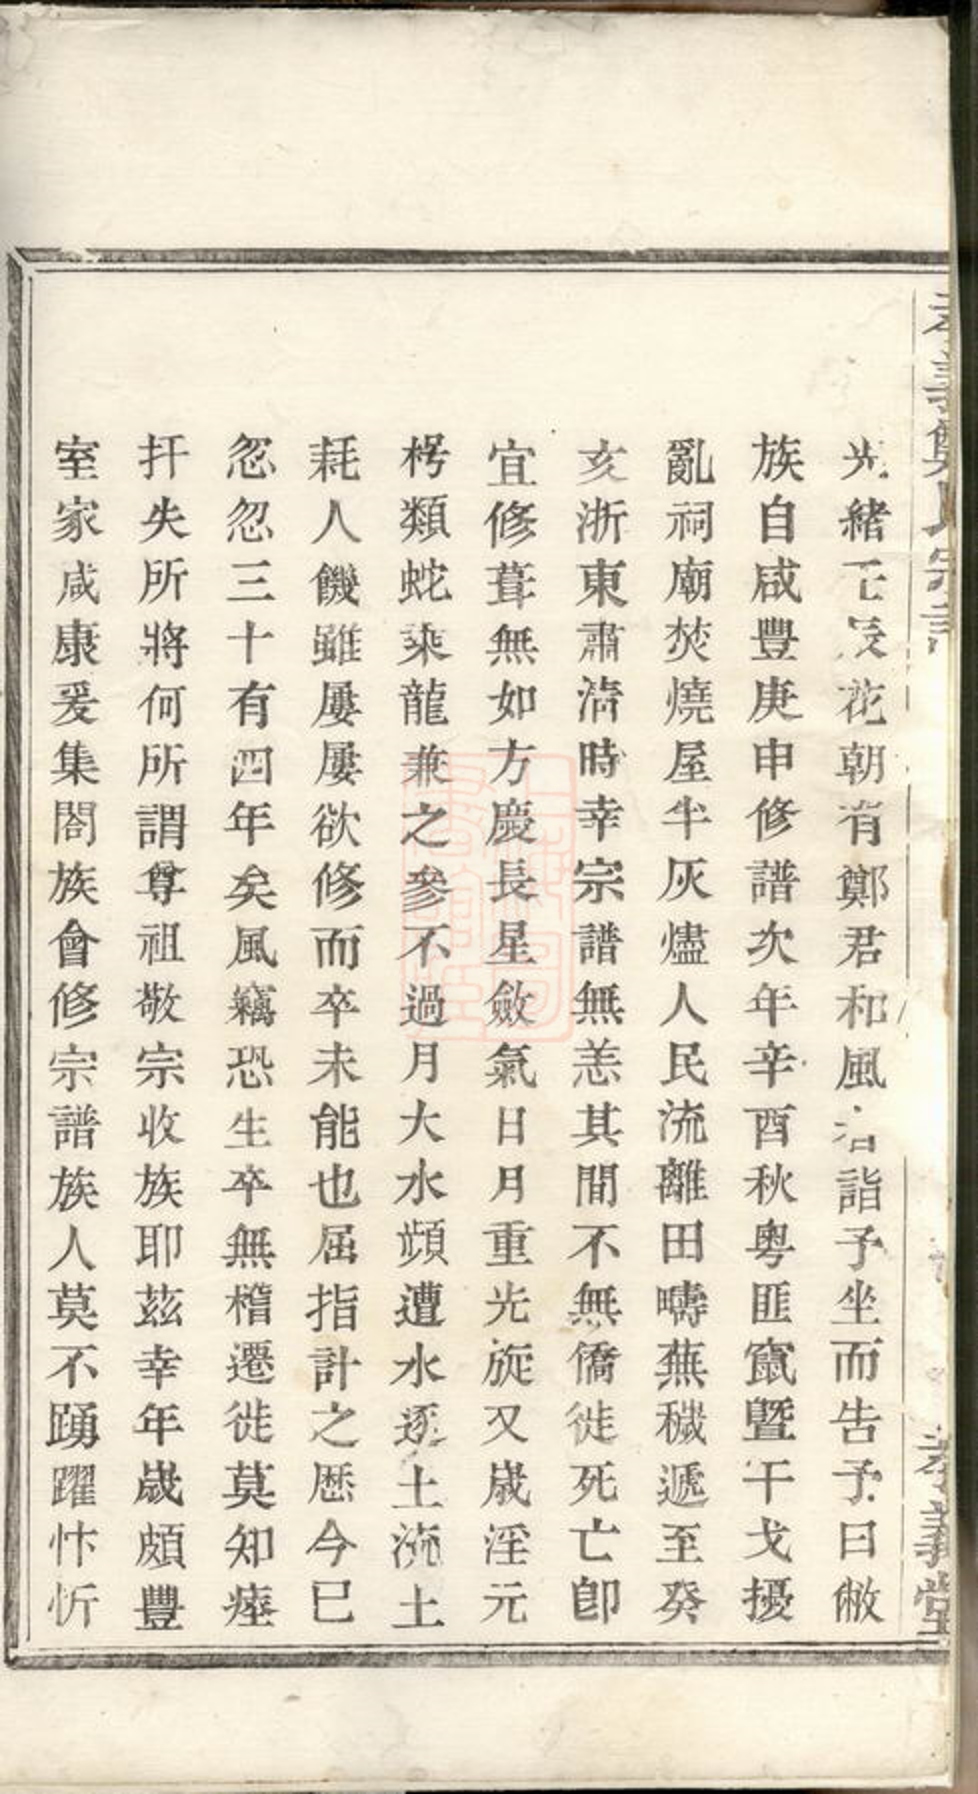 孝義鄭氏宗譜
孝義堂
光緒壬辰花朝有鄭君和風者詣予坐而告予曰敝
族自咸豐庚申修譜次年辛酉秋粵匪竄暨干戈擾
亂祠廟焚燒屋半灰燼人民流離田疇蕪穢遞至癸
亥浙東肅清時幸宗譜無恙其間不無僑徙死亡卽
宜修葺無如方慶長星斂氣日月重光旋又歲淫元
枵類蛇乘龍兼之參不過月大水頻遭水逐土流土
耗人饑雖屢屢欲修而卒未能也屈指計之歷今巳
忽忽三十有四年矣風竊恐生卒無稽遷徙莫知瘗
扦失所將何所謂尊祖敬宗收族耶茲幸年歲頗豐
室家咸康爰集閤族會修宗譜族人莫不踴躍忭忻